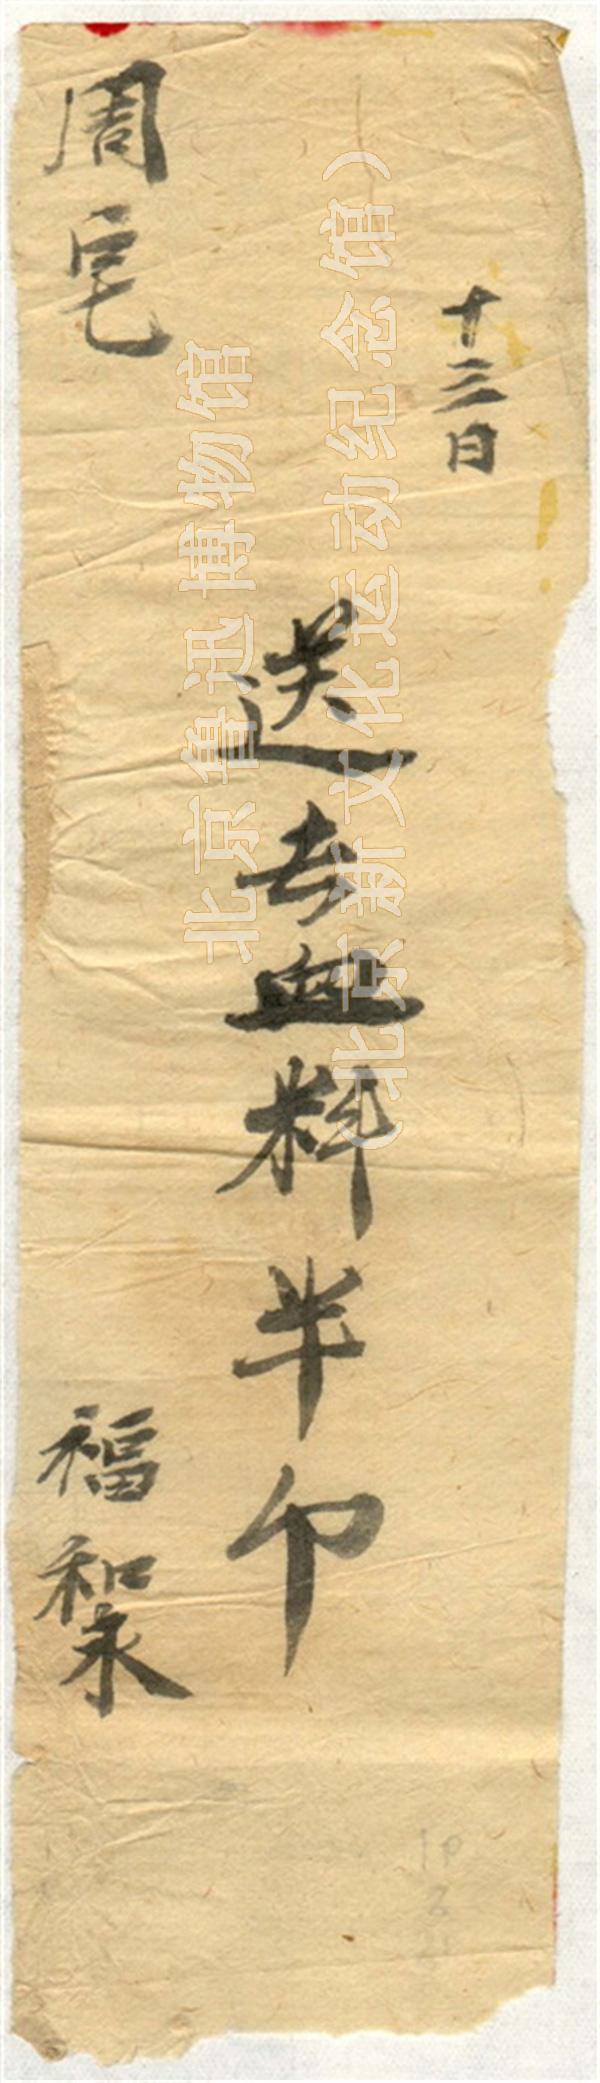 十三日
送去血料半
周宅
福和永
北京鲁迅博物馆
（北京新文化运动纪念馆）